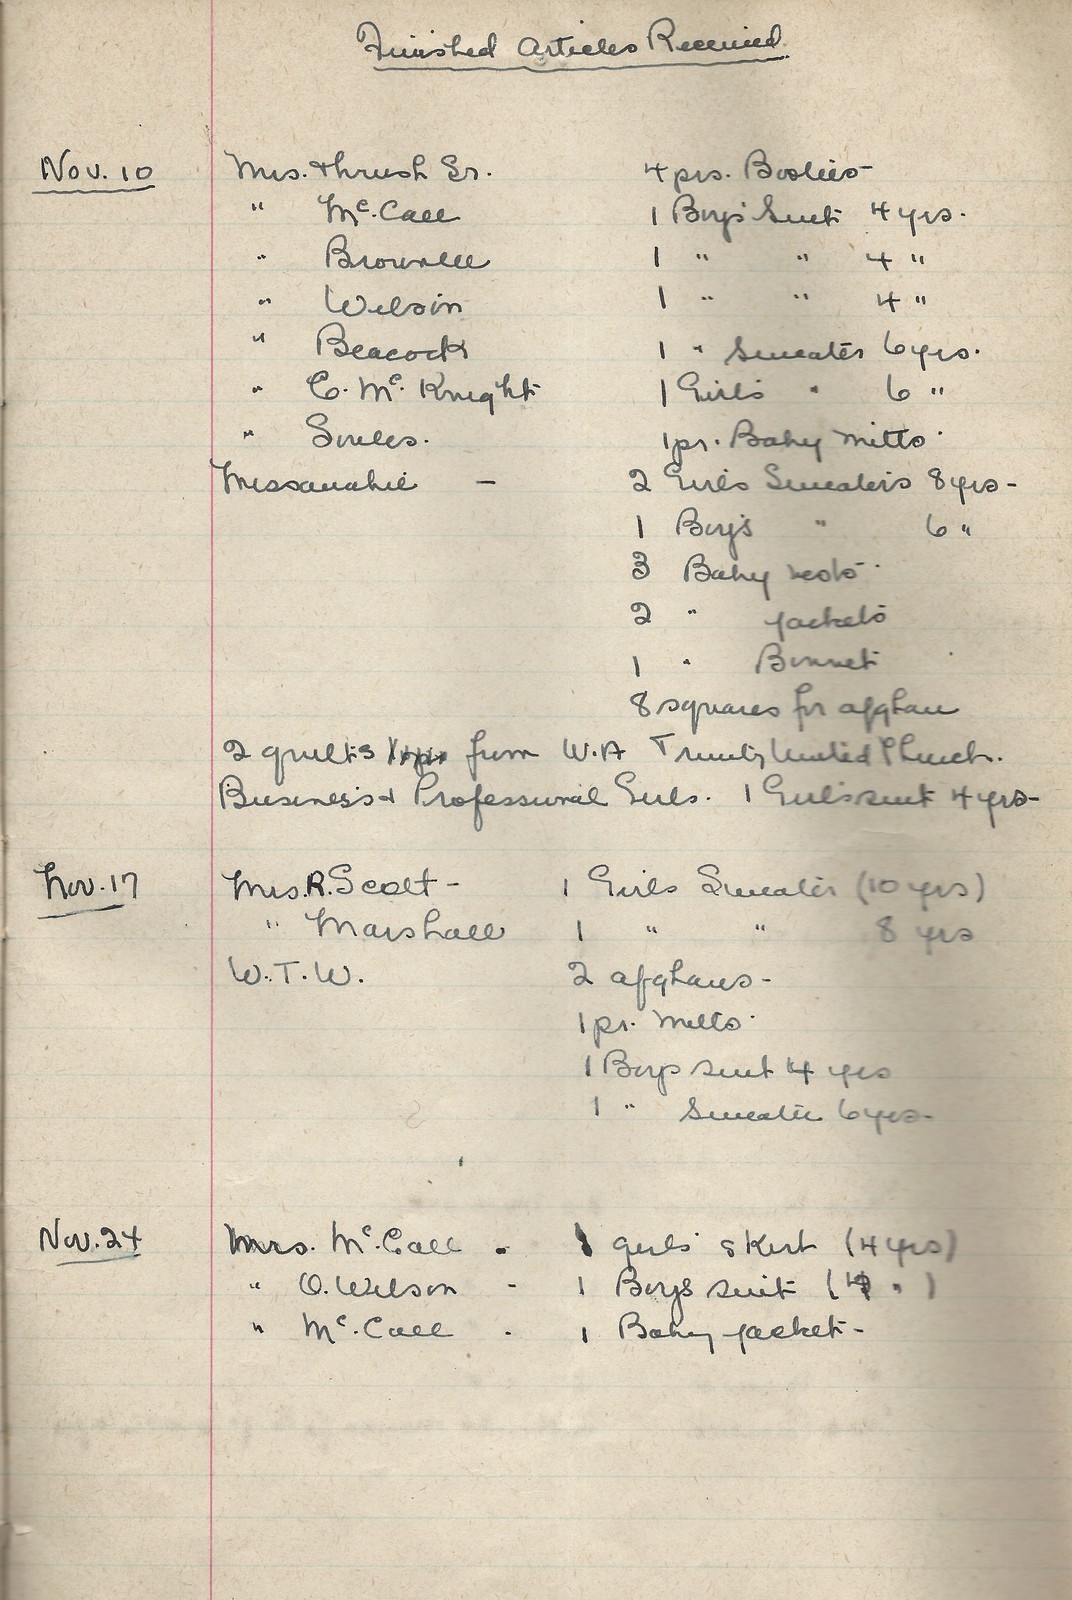 Finished Articles Received
Nov. 10 Mrs. Thrush Sr. 4 prs. Booties
" Mc.Call 1 Boys' Suit 4 yrs.
" Brownlee 1 " " 4 "
" Wilson 1 " " 4 "
" Beacock 1 " Sweater 6 yrs.
" C. Mc.Knight 1 Girls " 6 "
" Soules. 1 pr. Baby mitts
Missanabie - 2 Girls Sweaters 8 yrs-
1 Boy's " 6 "
3 Baby vests
2 " jackets
1 " Bonnet
8 squares for afghan
2 quilts from W.A Trinity United Church.
Business & Professional Girls. 1 Girls suit 4 yrs-
Nov. 17 Mrs. R. Scott - 1 Girls Sweater (10 yrs)
" Marshall 1 " " 8 yrs
W.T.W. 2 afghans-
1 pr. mitts
1 Boys suit 4 yrs
1 " Sweater 6 yrs-
Nov. 24 Mrs. Mc.Call - 1 girls' skirt (4 yrs)
" O. Wilson - 1 Boys suit (4 ")
" Mc.Call - 1 Baby jacket-